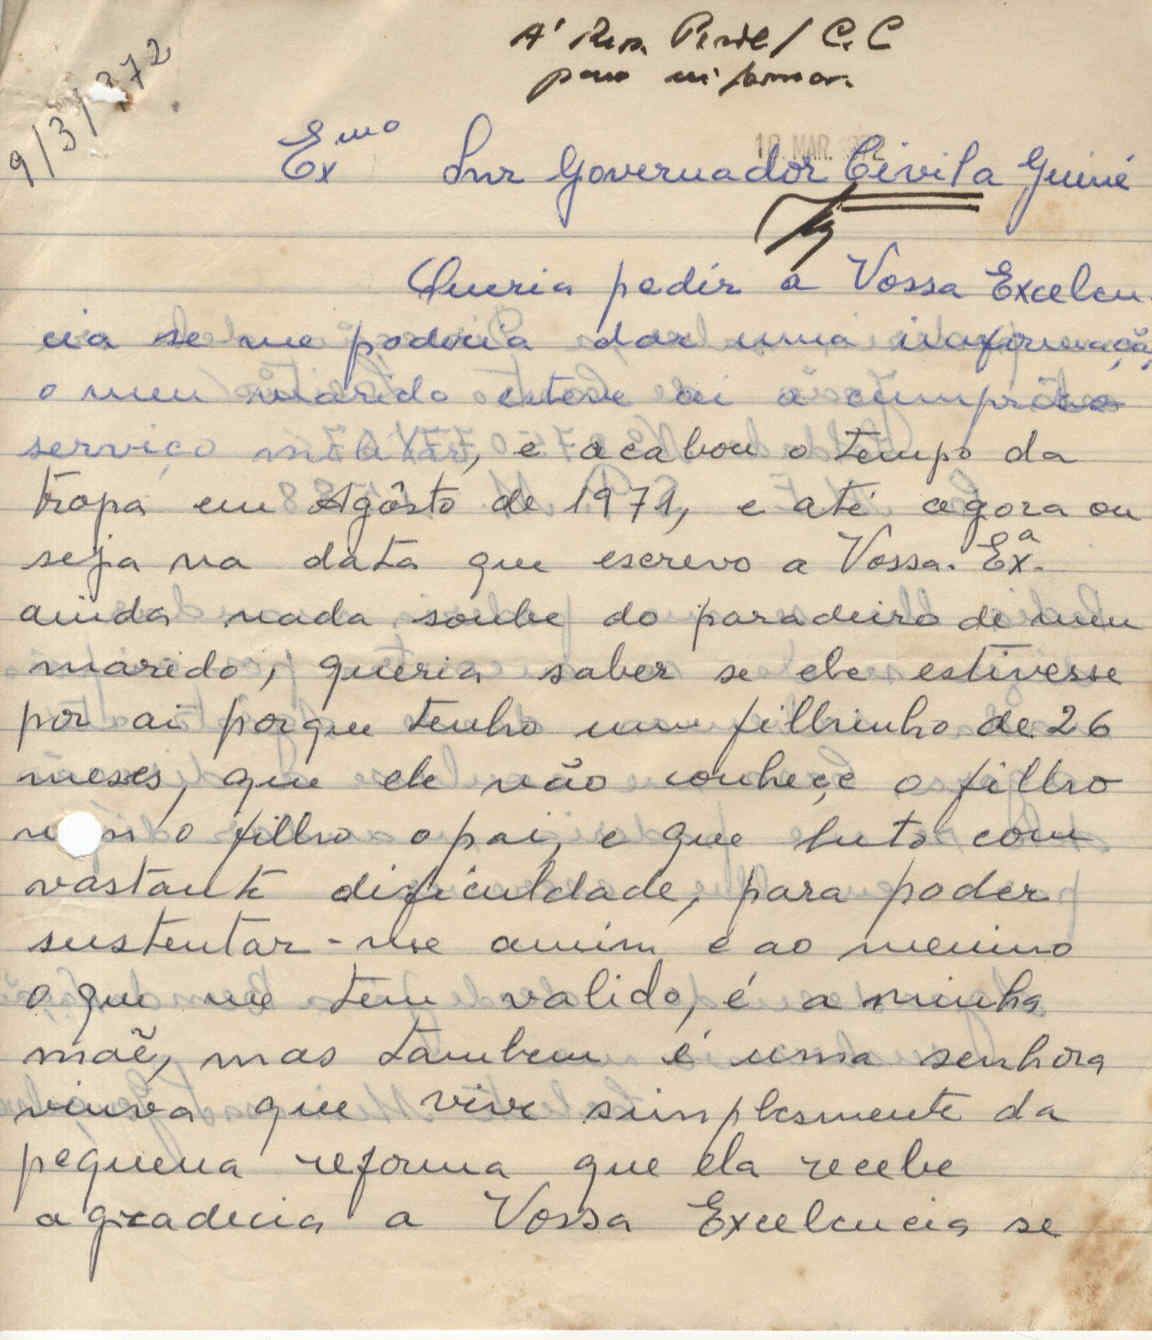 9/3/972
A' Rep. Pessl / C. C
para informar.
10. MAR. 972
Exmo Snr Governador Civil a Guiné
Queria pedir a Vossa Excelen-
cia se me poderia dar uma informação,
o meu marido esteve ai a cumprir o
serviço militar, e acabou o tempo da
tropa em Agôsto de 1971, e até agora ou
seja na data que escrevo a Vossa. Exa.
ainda nada soube do paradeiro de meu
marido, queria saber se ele estivesse
por ai porque tenho um filhinho de 26
meses, que ele não conheçe o filho
nem o filho o pai, e que luto com
vastante dificuldade, para poder
sustentar-me amim e ao menino
o que me tem valido, é a minha
mãe, mas tambem é uma senhora
viuva que vive simplesmente da
pequena reforma que ela recebe
agradecia a Vossa Excelencia se